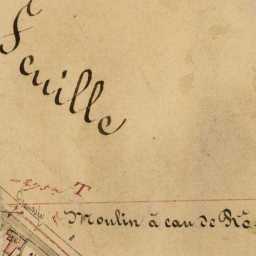 Feuille
T
Moulin à eau de Rô